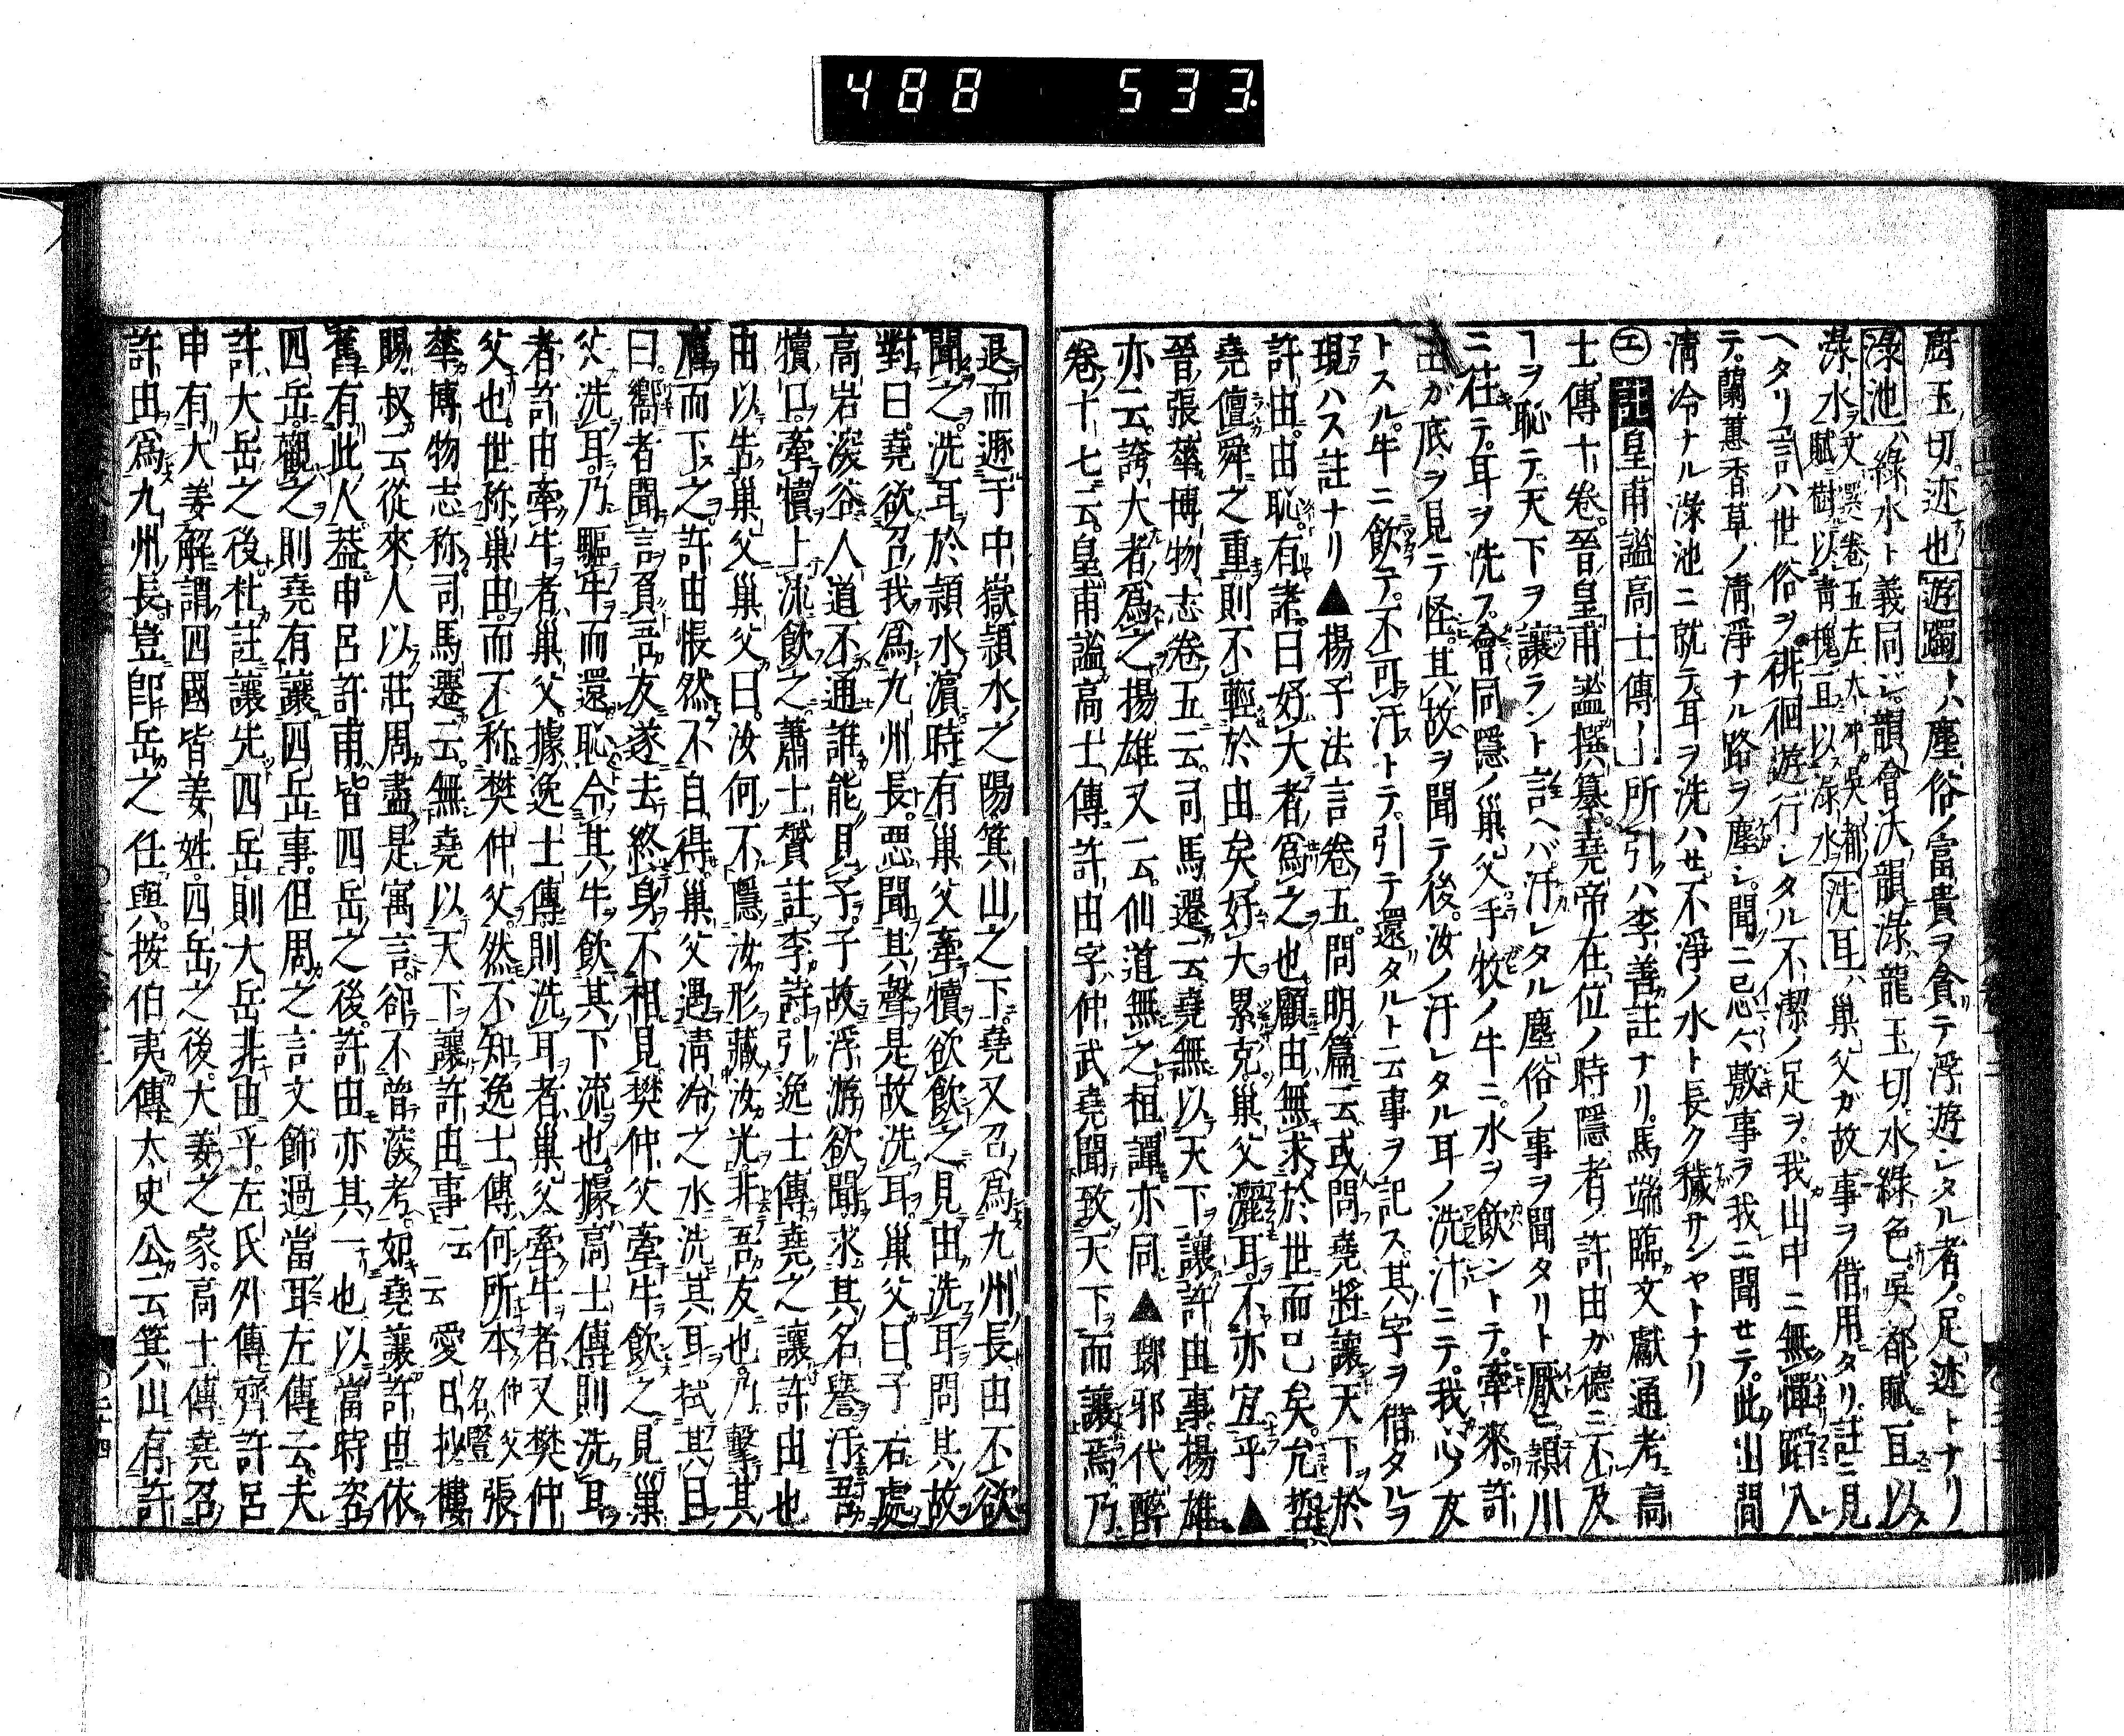 488 533
厨玉切迹也遊躅トハ塵俗ノ富貴ヲ貪テ浮遊シタル者ノ足迹トナリ
淥池ハ綠水ト義同シ韻會沃韻淥龍玉切水綠色吳都賦亘以
淥水文選卷五左太冲吳都賦樹以靑槐亘以淥水洗耳ハ巢父ガ故事ヲ借用タリ註ニ見
ヘタリ言ハ世俗ヲ徘徊遊行シタル不潔ノ足ヲ我山中ニ無憚蹈入
テ蘭蕙香草ノ淸淨ナル路ヲ塵シ聞ニ忌ヘ敷事ヲ我ニ聞セテ此山間
淸冷ナル淥池ニ就テ耳ヲ洗ハセ不淨ノ水ト長ク穢サンヤトナリ
㊁註皇甫謐高士傳所引ハ李善註ナリ馬端臨文獻通考高
士傳十卷晉皇甫謐撰纂堯帝在位ノ時隱者ノ許由ガ德ニ不及
ヿヲ恥テ天下ヲ讓ラント詔ヘバ汙レタル塵俗ノ事ヲ聞タリト厭ヒ潁川
ニ往テ耳ヲ洗フ會同隱ノ巢父手牧ノ牛ニ水ヲ飮ントテ牽來許
由ガ底ヲ見テ怪其故ヲ聞テ後汝ノ汙レタル耳ノ洗汁ニテ我心ノ友
トスル牛ニ飮テ不可汙トテ引テ還タルト云事ヲ記ス其字ヲ借タルヲ
現ハス註ナリ▲揚子法言卷五問明篇云或問堯將讓天下於
許由由恥有諸曰好大者爲之也顧由無求於世而已矣允哲
堯儃舜之重則不輕於由矣好大累克巢父灑耳不亦宜乎▲
晉張華博物志卷五云司馬遷云堯無以天下讓許由事揚雄
亦云誇大者爲之揚雄又云仙道無之桓譚亦同▲瑯邪代醉
卷十七云皇甫謐高士傳許由字仲武堯聞致天下而讓焉乃
退而遯于中嶽潁水之陽箕山之下堯又召爲九州長由不欲
聞之洗耳於潁水濱時有巢父牽犢欲飮之見由洗耳問其故
對曰堯欲召我爲九州長惡聞其聲是故洗耳巢父曰子右處
高岩深谷人道不通誰能見子子故浮游欲聞求其名譽汙吾
犢口牽犢上流飮之蕭士贇註李詩引逸士傳堯之讓許由也
由以告巢父巢父曰汝何不隱汝形藏汝光非吾友也乃擊其
膺而下之許由悵然不自得巢父遇淸冷之水洗其耳拭其目
曰嚮者聞言負吾友遂去終身不相見樊仲父牽牛飮之見巢
父洗耳乃驅牛而還恥令其牛飮其下流也據高士傳則洗耳
者許由牽牛者巢父據逸士傳則洗耳者巢父牽牛者又樊仲
父也世称巢由而不称樊仲父然不知逸士傳何所本仲父名豎張
華博物志称司馬遷云無堯以天下讓許由事云云愛日抄樓
賜叔云從來人以莊周盡是寓言卻不曾深考如堯讓許由依
舊有此人葢申呂許甫皆四岳之後許由亦其一也以當時咨
四岳觀之則堯有讓四岳事但周之言文飾過當耳左傳云夫
許大岳之後杜註讓先四岳則大岳非由乎左氏外傳齊許呂
申有大姜解謂四國皆姜姓四岳之後大姜之家高士傳堯召
許由爲九州長豈卽岳之任與按伯夷傳太史公云箕山有許